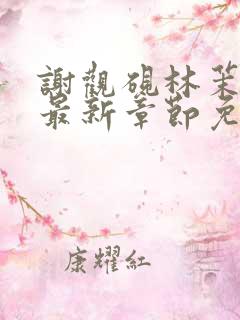 謝觀硯林茉
最新章節免
康耀紅